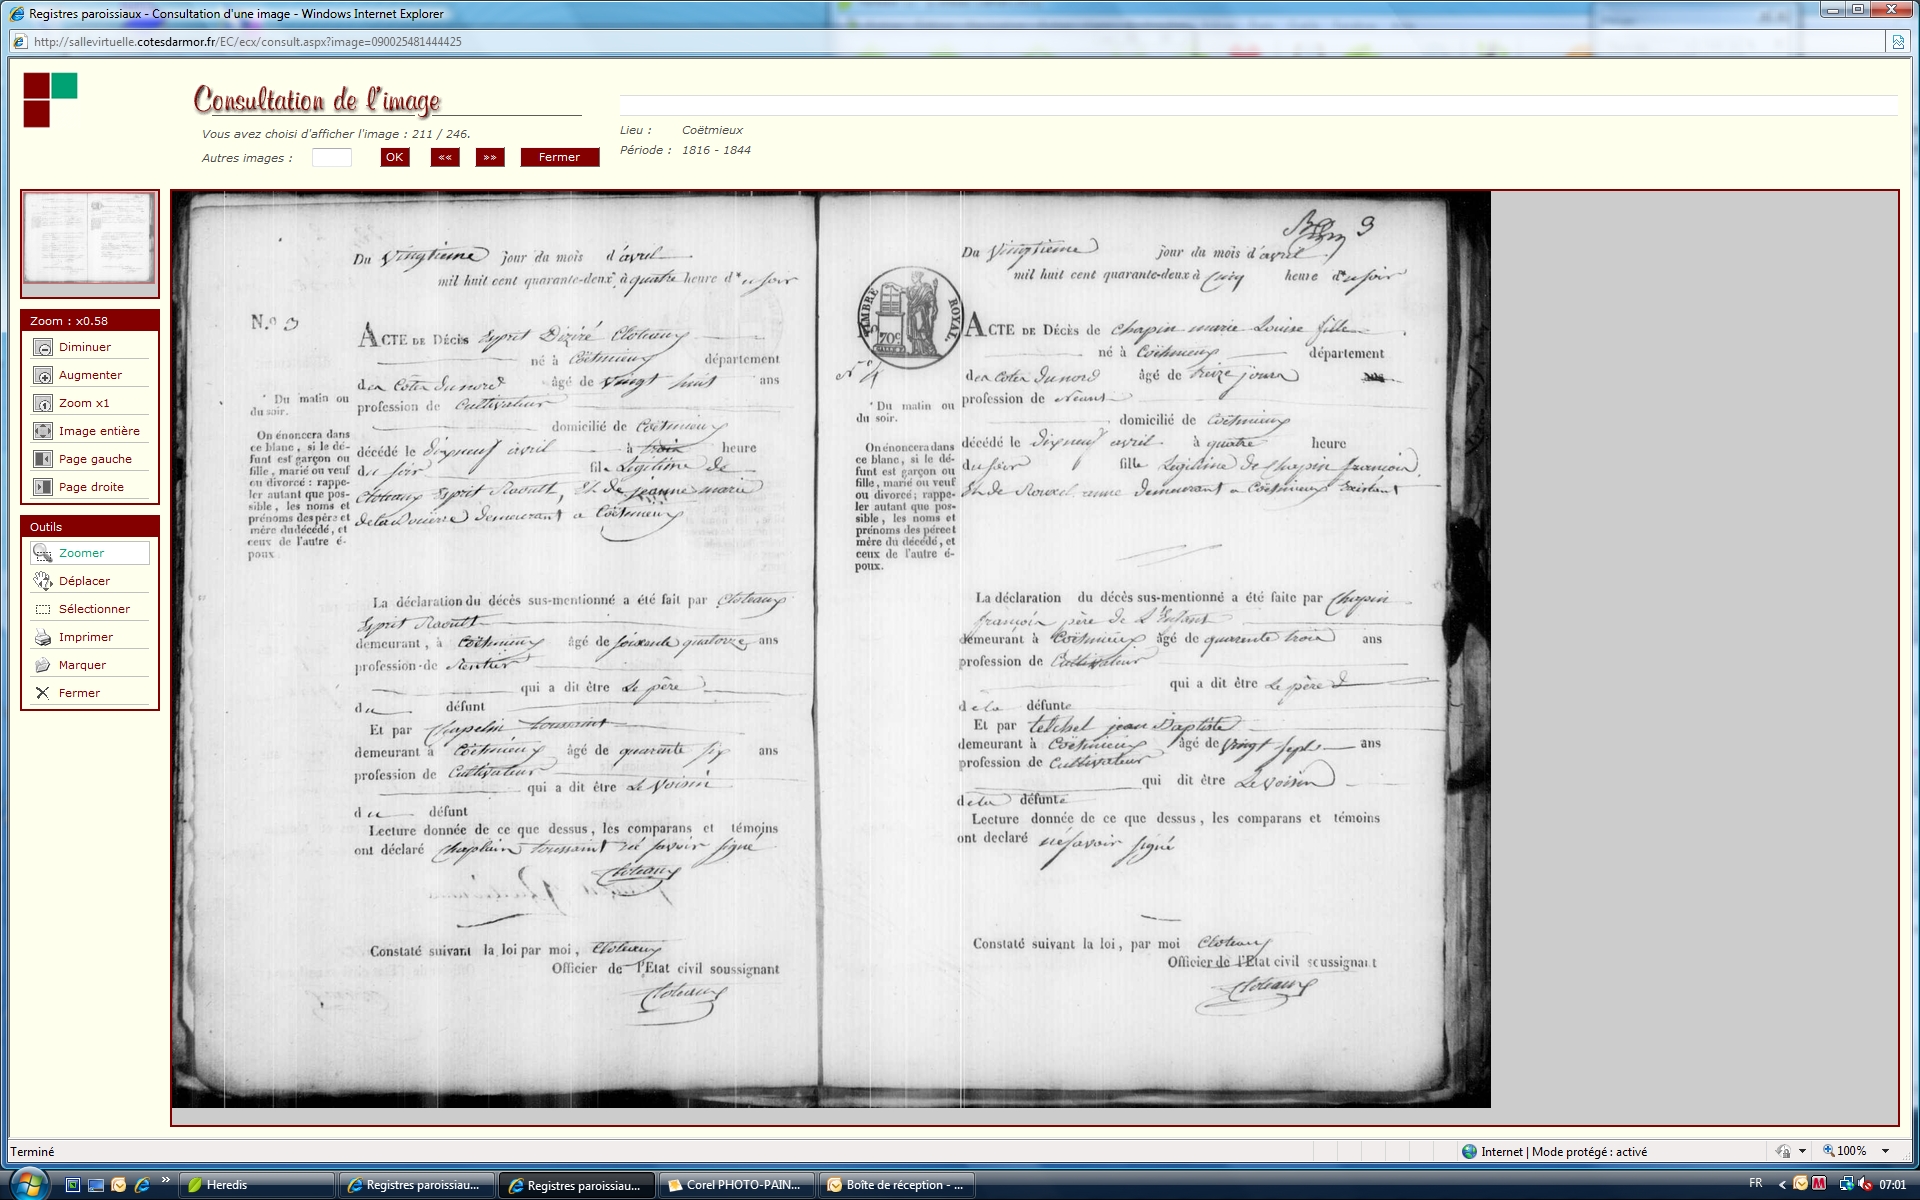 Registres paroissiaux - Consultation d'une image - Windows Internet Explorer
http://sallevirtuelle.cotesdarmor.fr/EC/ecx/consult.aspx?image=090025481444425
Consultation de l'image
Vous avez choisi d'afficher l'image : 211 / 246.
Autres images :
OK
««
»»
Fermer
Lieu : Coëtmieux
Période : 1816 - 1844
Zoom : x0.58
Diminuer
Augmenter
Zoom x1
Image entière
Page gauche
Page droite
Outils
Zoomer
Déplacer
Sélectionner
Imprimer
Marquer
Fermer
Du Vingtieme jour du mois d'avril
mil huit cent quarante-deux, à quatre heure d* u soir
N.º 3
ACTE DE DÉCÈS Esprit Déziré Cloteaux
né à Coëtmieux département
des Cotes du nord âgé de vingt huit ans
profession de Cultivateur
domicilié de Coëtmieux
décédé le dixneuf avril à trois heure
du soir fils Légitime de
Cloteaux Esprit Raoult, Et de jeanne marie
demeurant a Coëtmieux
* Du matin ou
du soir.
On énoncera dans
ce blanc, si le dé-
funt est garçon ou
fille, marié ou veuf
ou divorcé : rappe-
ler autant que pos-
sible, les noms et
prénoms des père et
mère du décédé, et
ceux de l'autre é-
poux
La déclaration du décès sus-mentionné a été fait par Cloteaux
Esprit Raoult
demeurant, à Coëtmieux âgé de soixante quatorze ans
profession de Rentier
qui a dit être Le père
du défunt
Et par Chapelin toussaint
demeurant à Coëtmieux âgé de quarente six ans
profession de Cultivateur
qui a dit être Le Voisin
du défunt
Lecture donnée de ce que dessus, les comparans et témoins
ont déclaré Chaplain toussaint né savoir signé
Cloteaux
Constaté suivant la loi par moi, Cloteaux
Officier de l'Etat civil soussignant
Cloteaux
3
Du Vingtieme jour du mois d'avril
mil huit cent quarante-deux à Cinq heure d* u soir
TIMBRE ROYAL
70c
Nº 4
ACTE DE DÉCÈS de Chapin marie Louise fille
né à Coëtmieux département
des Cotes du nord âgé de treize jours
profession de Néant
domicilié de Coëtmieux
décédé le dixneuf avril à quatre heure
du soir fille Légitime de Chapin françois
Et de Rouxel anne demeurant a Coëtmieux Existant
* Du matin ou
du soir.
On énoncera dans
ce blanc, si le dé-
funt est garçon ou
fille, marié ou veuf
ou divorcé ; rappe-
ler autant que pos-
sible, les noms et
prénoms des père et
mère du décédé, et
ceux de l'autre é-
poux.
La déclaration du décès sus-mentionné a été faite par Chapin
françois père de L'Enfant
demeurant à Coëtmieux âgé de quarente trois ans
profession de Cultivateur
qui a dit être Le père
de la défunte
Et par jean Baptiste
demeurant à Coëtmieux âgé de vingt sept ans
profession de Cultivateur
qui dit être Le voisin
de la défunte
Lecture donnée de ce que dessus, les comparans et témoins
ont déclaré né savoir signé
Constaté suivant la loi, par moi Cloteaux
Officier de l'Etat civil soussignant
Cloteaux
Terminé
Internet | Mode protégé : activé
100%
Heredis
Registres paroissiau...
Registres paroissiau...
Corel PHOTO-PAIN...
Boîte de réception - ...
FR
07:01